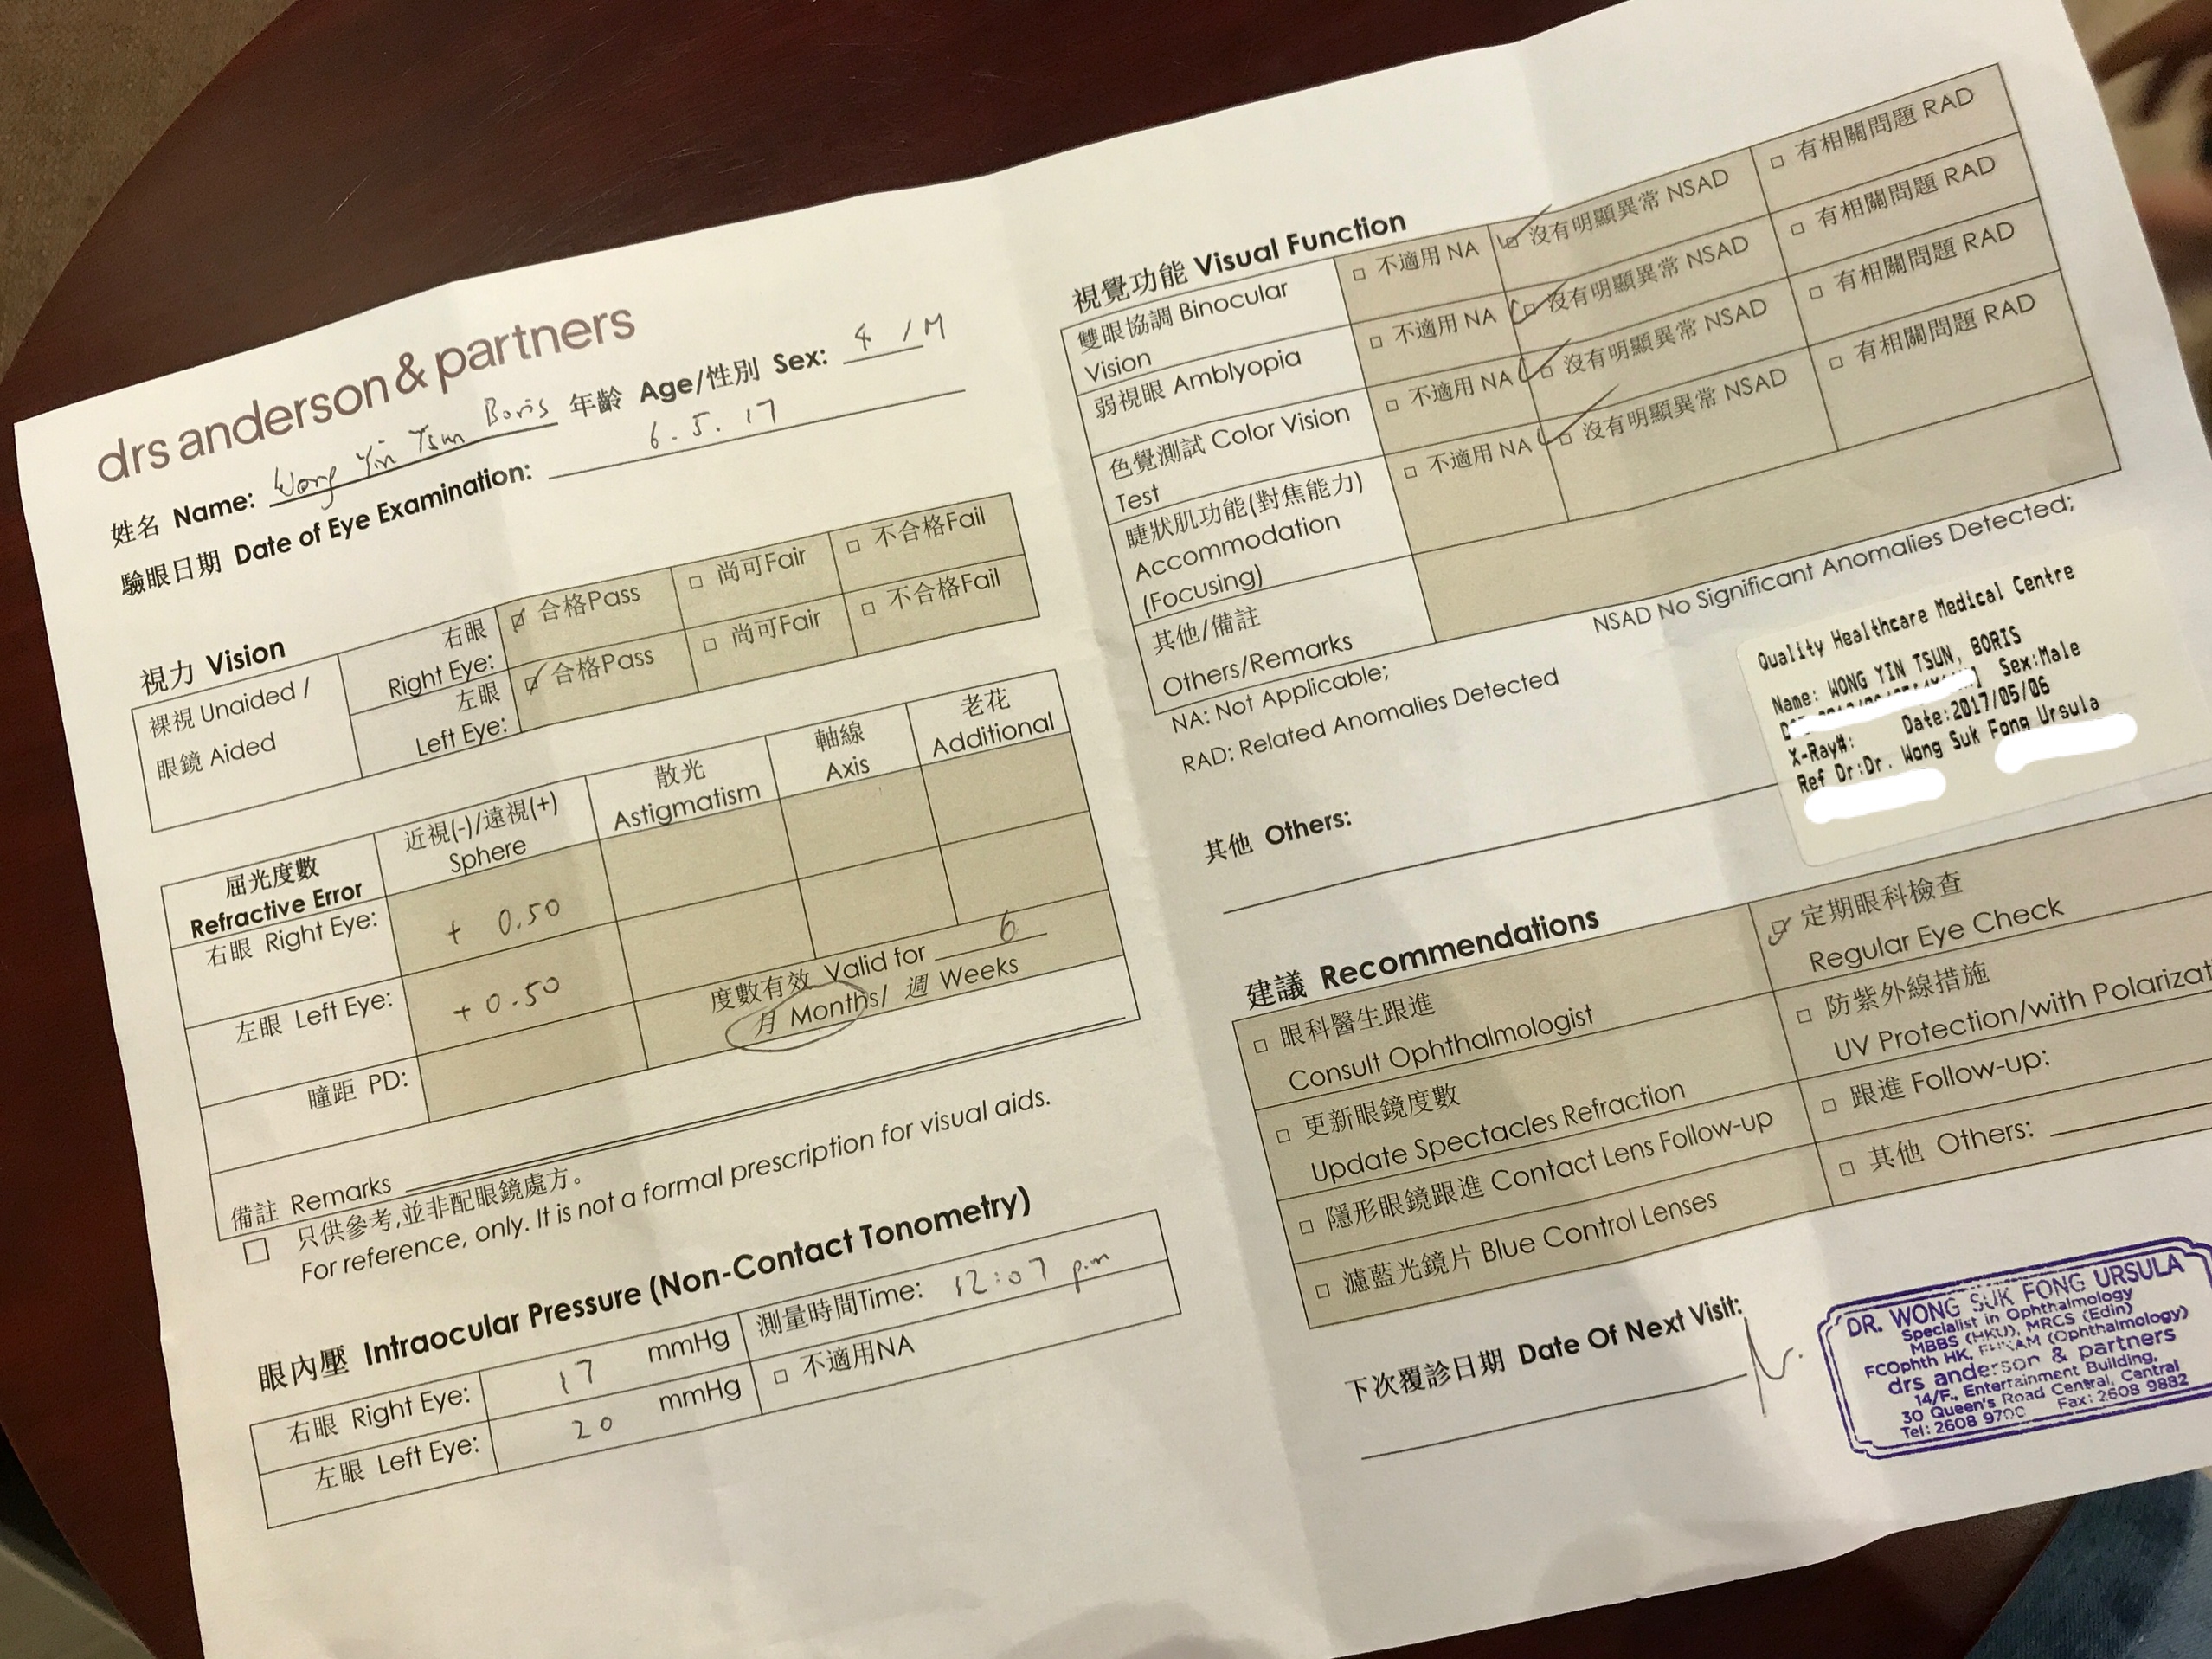 drs anderson & partners
姓名 Name: Wong Yin Tsun Boris 年齡 Age/性別 Sex: 4 / M
驗眼日期 Date of Eye Examination: 6.5.17
視力 Vision
裸視 Unaided /
眼鏡 Aided
右眼
Right Eye:
☑ 合格Pass □ 尚可Fair □ 不合格Fail
左眼
Left Eye:
☑ 合格Pass □ 尚可Fair □ 不合格Fail
屈光度數
Refractive Error
近視(-)/遠視(+)
Sphere
散光
Astigmatism
軸線
Axis
老花
Additional
右眼 Right Eye: + 0.50
左眼 Left Eye: + 0.50
瞳距 PD:
度數有效 Valid for 6
月 Months/ 週 Weeks
備註 Remarks
□ 只供參考,並非配眼鏡處方。
For reference, only. It is not a formal prescription for visual aids.
眼內壓 Intraocular Pressure (Non-Contact Tonometry)
右眼 Right Eye: 17 mmHg 測量時間Time: 12:07 pm
左眼 Left Eye: 20 mmHg □ 不適用NA
視覺功能 Visual Function
雙眼協調 Binocular
Vision
□ 不適用 NA ☑ 沒有明顯異常 NSAD □ 有相關問題 RAD
弱視眼 Amblyopia
□ 不適用 NA ☑ 沒有明顯異常 NSAD □ 有相關問題 RAD
色覺測試 Color Vision
Test
□ 不適用 NA ☑ 沒有明顯異常 NSAD □ 有相關問題 RAD
睫狀肌功能(對焦能力)
Accommodation
(Focusing)
□ 不適用 NA ☑ 沒有明顯異常 NSAD □ 有相關問題 RAD
其他/備註
Others/Remarks
NA: Not Applicable;
NSAD No Significant Anomalies Detected;
RAD: Related Anomalies Detected
Quality Healthcare Medical Centre
Name: WONG YIN TSUN, BORIS
Sex:Male
X-Ray#: Date:2017/05/06
Ref Dr:Dr. Wong Suk Fong Ursula
其他 Others:
建議 Recommendations
□ 眼科醫生跟進
Consult Ophthalmologist
☑ 定期眼科檢查
Regular Eye Check
□ 更新眼鏡度數
Update Spectacles Refraction
□ 防紫外線措施
UV Protection/with Polarizat
□ 隱形眼鏡跟進 Contact Lens Follow-up
□ 跟進 Follow-up:
□ 濾藍光鏡片 Blue Control Lenses
□ 其他 Others:
下次覆診日期 Date Of Next Visit:
DR. WONG SUK FONG URSULA
Specialist in Ophthalmology
MBBS (HKU), MRCS (Edin)
FCOphth HK, FHKAM (Ophthalmology)
drs anderson & partners
14/F., Entertainment Building,
30 Queen's Road Central, Central
Tel: 2608 9700 Fax: 2608 9882